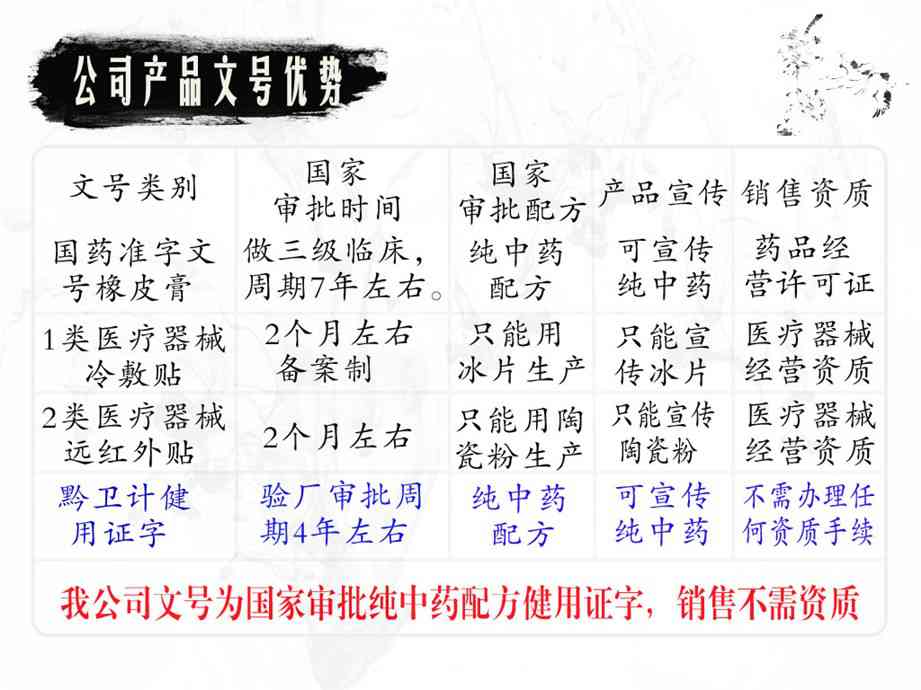 公司产品文号优势
文号类别
国家
审批时间
国家
审批配方
产品宣传
销售资质
国药准字文
号橡皮膏
做三级临床，
周期7年左右。
纯中药
配方
可宣传
纯中药
药品经
营许可证
1类医疗器械
冷敷贴
2个月左右
备案制
只能用
冰片生产
只能宣
传冰片
医疗器械
经营资质
2类医疗器械
远红外贴
2个月左右
只能用陶
瓷粉生产
只能宣传
陶瓷粉
医疗器械
经营资质
黔卫计健
用证字
验厂审批周
期4年左右
纯中药
配方
可宣传
纯中药
不需办理任
何资质手续
我公司文号为国家审批纯中药配方健用证字，销售不需资质